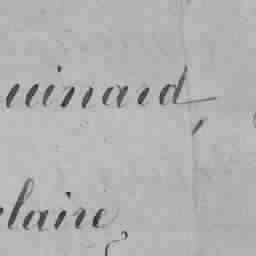 uinard,
laire,